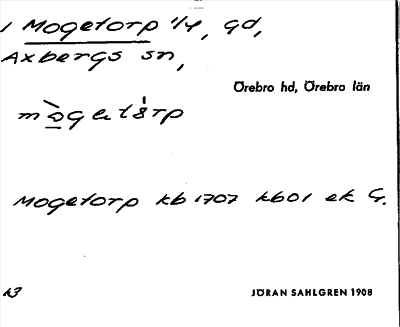 1 Mogetorp 1/4, gd,
Axbergs sn,
Örebro hd, Örebro län
Mogetorp kb 1707 kb01 ek G.
JÖRAN SAHLGREN 1908